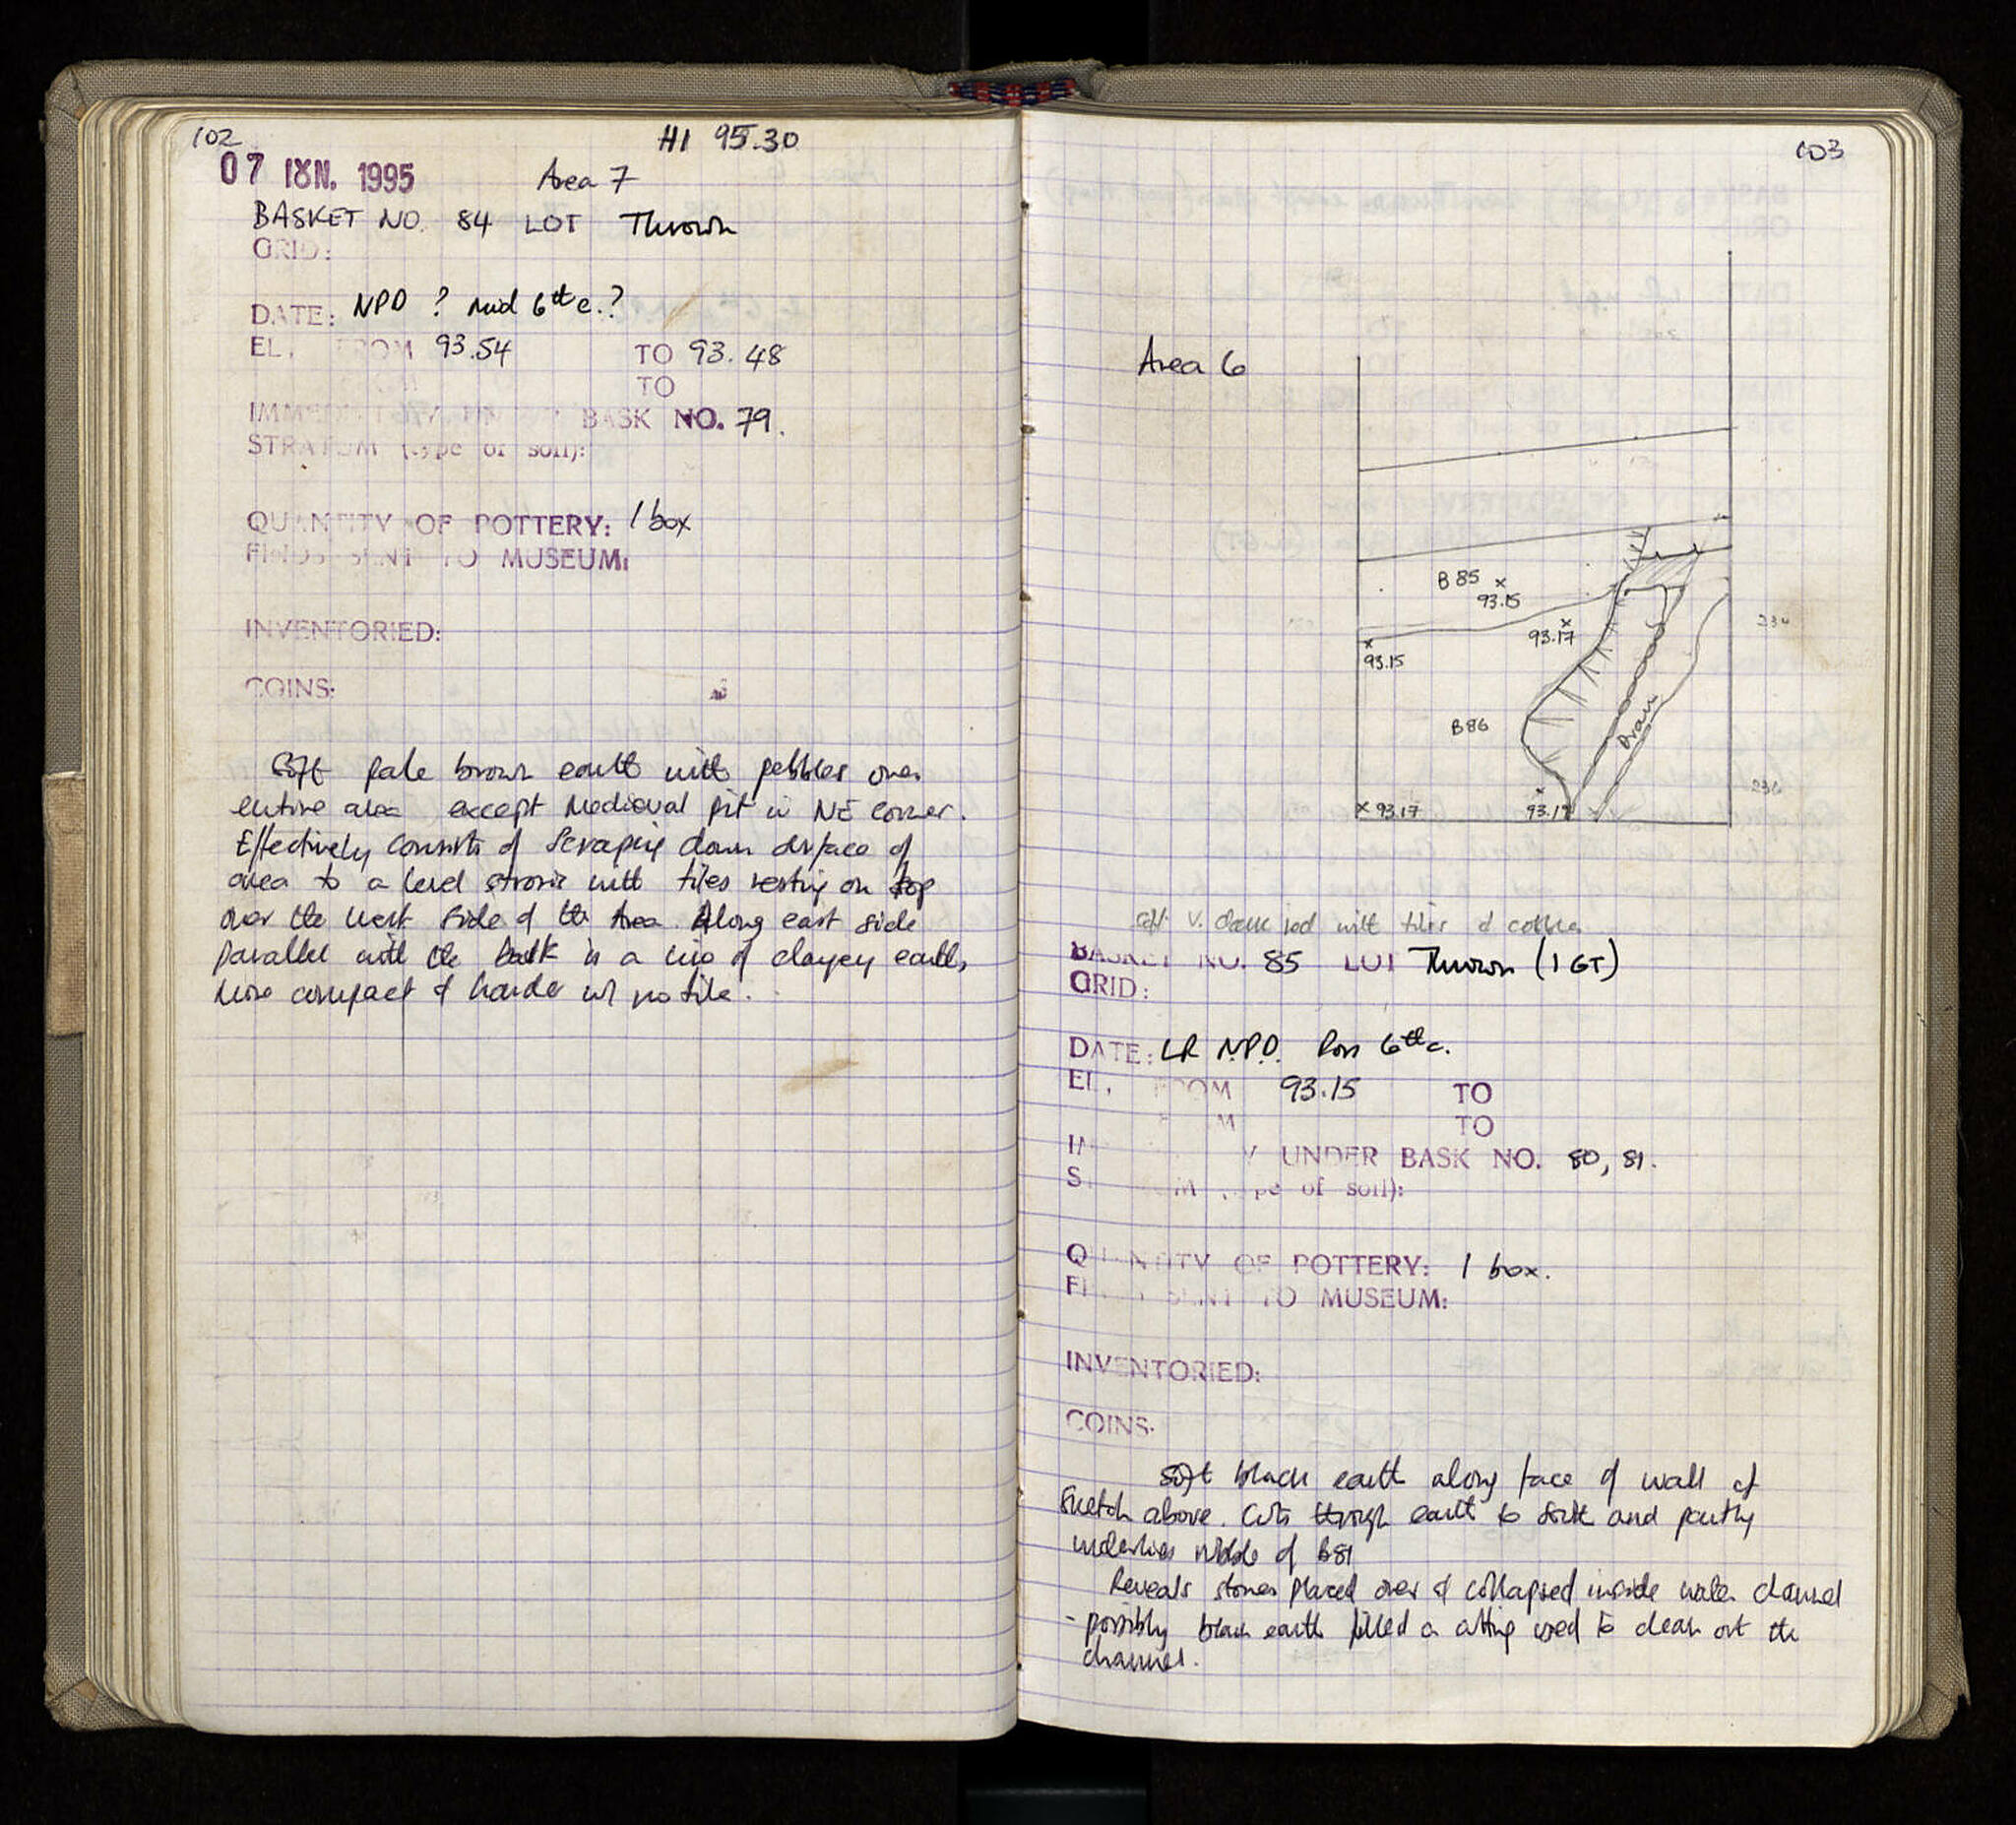 102
HI 95.30
07 ΙΟΥΝ. 1995
Area 7
BASKET NO. 84 LOT Thrown
GRID:
DATE: NPD ? mid 6th c.?
EL. FROM 93.54 TO 93.48
TO
BASK NO. 79.
STRATUM (type of soil):
QUANTITY OF POTTERY: 1 box
FINDS SENT TO MUSEUM:
INVENTORIED:
COINS:
Soft pale brown earth with pebbles over
entire area except Medieval pit in NE corner.
Effectively consists of scraping down surface of
area to a level with tiles resting on top
over the west side of the Area. Along east side
parallel with the balk is a line of clayey earth,
more compact & harder w/ no tile.
103
Area 6
B 85 x
93.15
x
93.17
x
93.15
B 86
Drain
236
x 93.17
x
93.19
soft v. dark red with tiles &
BASKET NO. 85 LOT Thrown (1 GT)
GRID:
DATE: LR NPD. Poss 6th c.
EL. FROM 93.15 TO
TO
UNDER BASK NO. 80, 81.
(type of soil):
QUANTITY OF POTTERY: 1 box.
SENT TO MUSEUM:
INVENTORIED:
COINS:
soft black earth along face of wall cf
sketch above. Cuts through earth to and partly
underlies rubble of B81
Reveals stones placed over & collapsed inside water channel
- possibly black earth filled a cutting used to clean out the
channel.